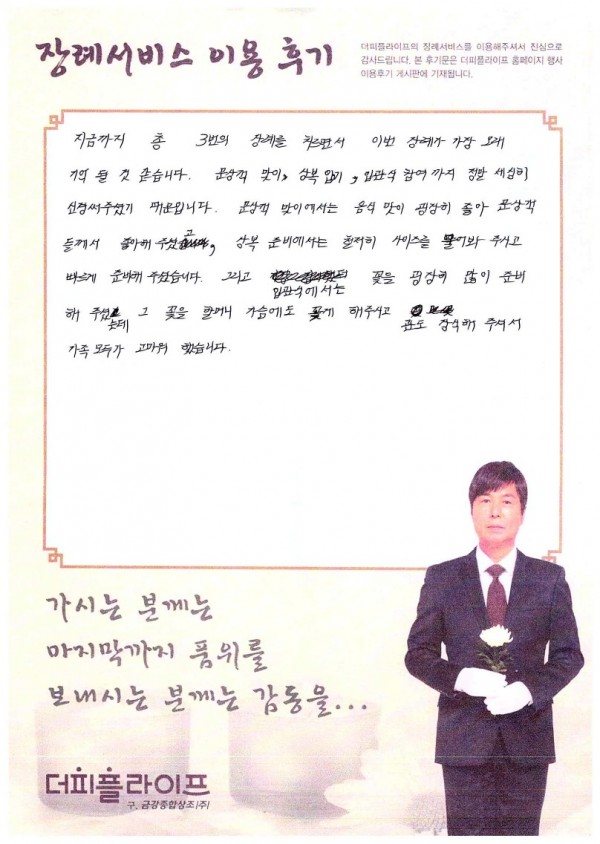 장례서비스 이용 후기
더피플라이프의 장례서비스를 이용해주셔서 진심으로
감사드립니다. 본 후기문은 더피플라이프 홈페이지 행사
이용후기 게시판에 기재됩니다.
지금까지 총 3번의 장례를 치르면서 이번 장례가 가장 오래
기억 될 것 같습니다. 문상객 맞이, 상복 입기, 입관식 참여 까지 정말 세심히
신경써주셨기 때문입니다. 문상객 맞이에서는 음식 맛이 굉장히 좋아 문상객
들께서 좋아해 주셨고, 상복 준비에서는 철저히 사이즈를 물어봐 주시고
빠르게 준비해 주셨습니다. 그리고 입관식에서는 꽃을 굉장히 많이 준비
해 주셨는데 그 꽃을 할머니 가슴에도 꽂게 해주시고 관도 장식해 주셔서
가족 모두가 고마워 했습니다.
가시는 분께는
마지막까지 품위를
보내시는 분께는 감동을...
더피플라이프
구. 금강종합상조(주)